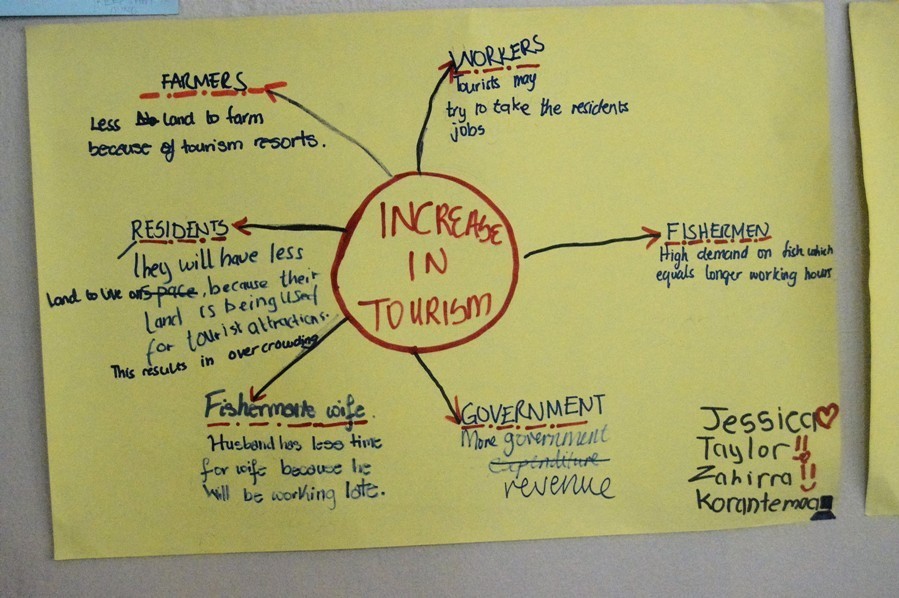 FARMERS
Less land to farm
because of tourism resorts.
WORKERS
Tourists may
try to take the residents
jobs
RESIDENTS
They will have less
land to live on space, because their
land is being used
for tourist attractions.
This results in overcrowding
INCREASE
IN
TOURISM
FISHERMEN
High demand on fish which
equals longer working hours
Fishermans wife.
Husband has less time
for wife because he
will be working late.
GOVERNMENT
More government
expenditure
revenue
Jessica
Taylor!!
Zahirra!!
Korantemaa